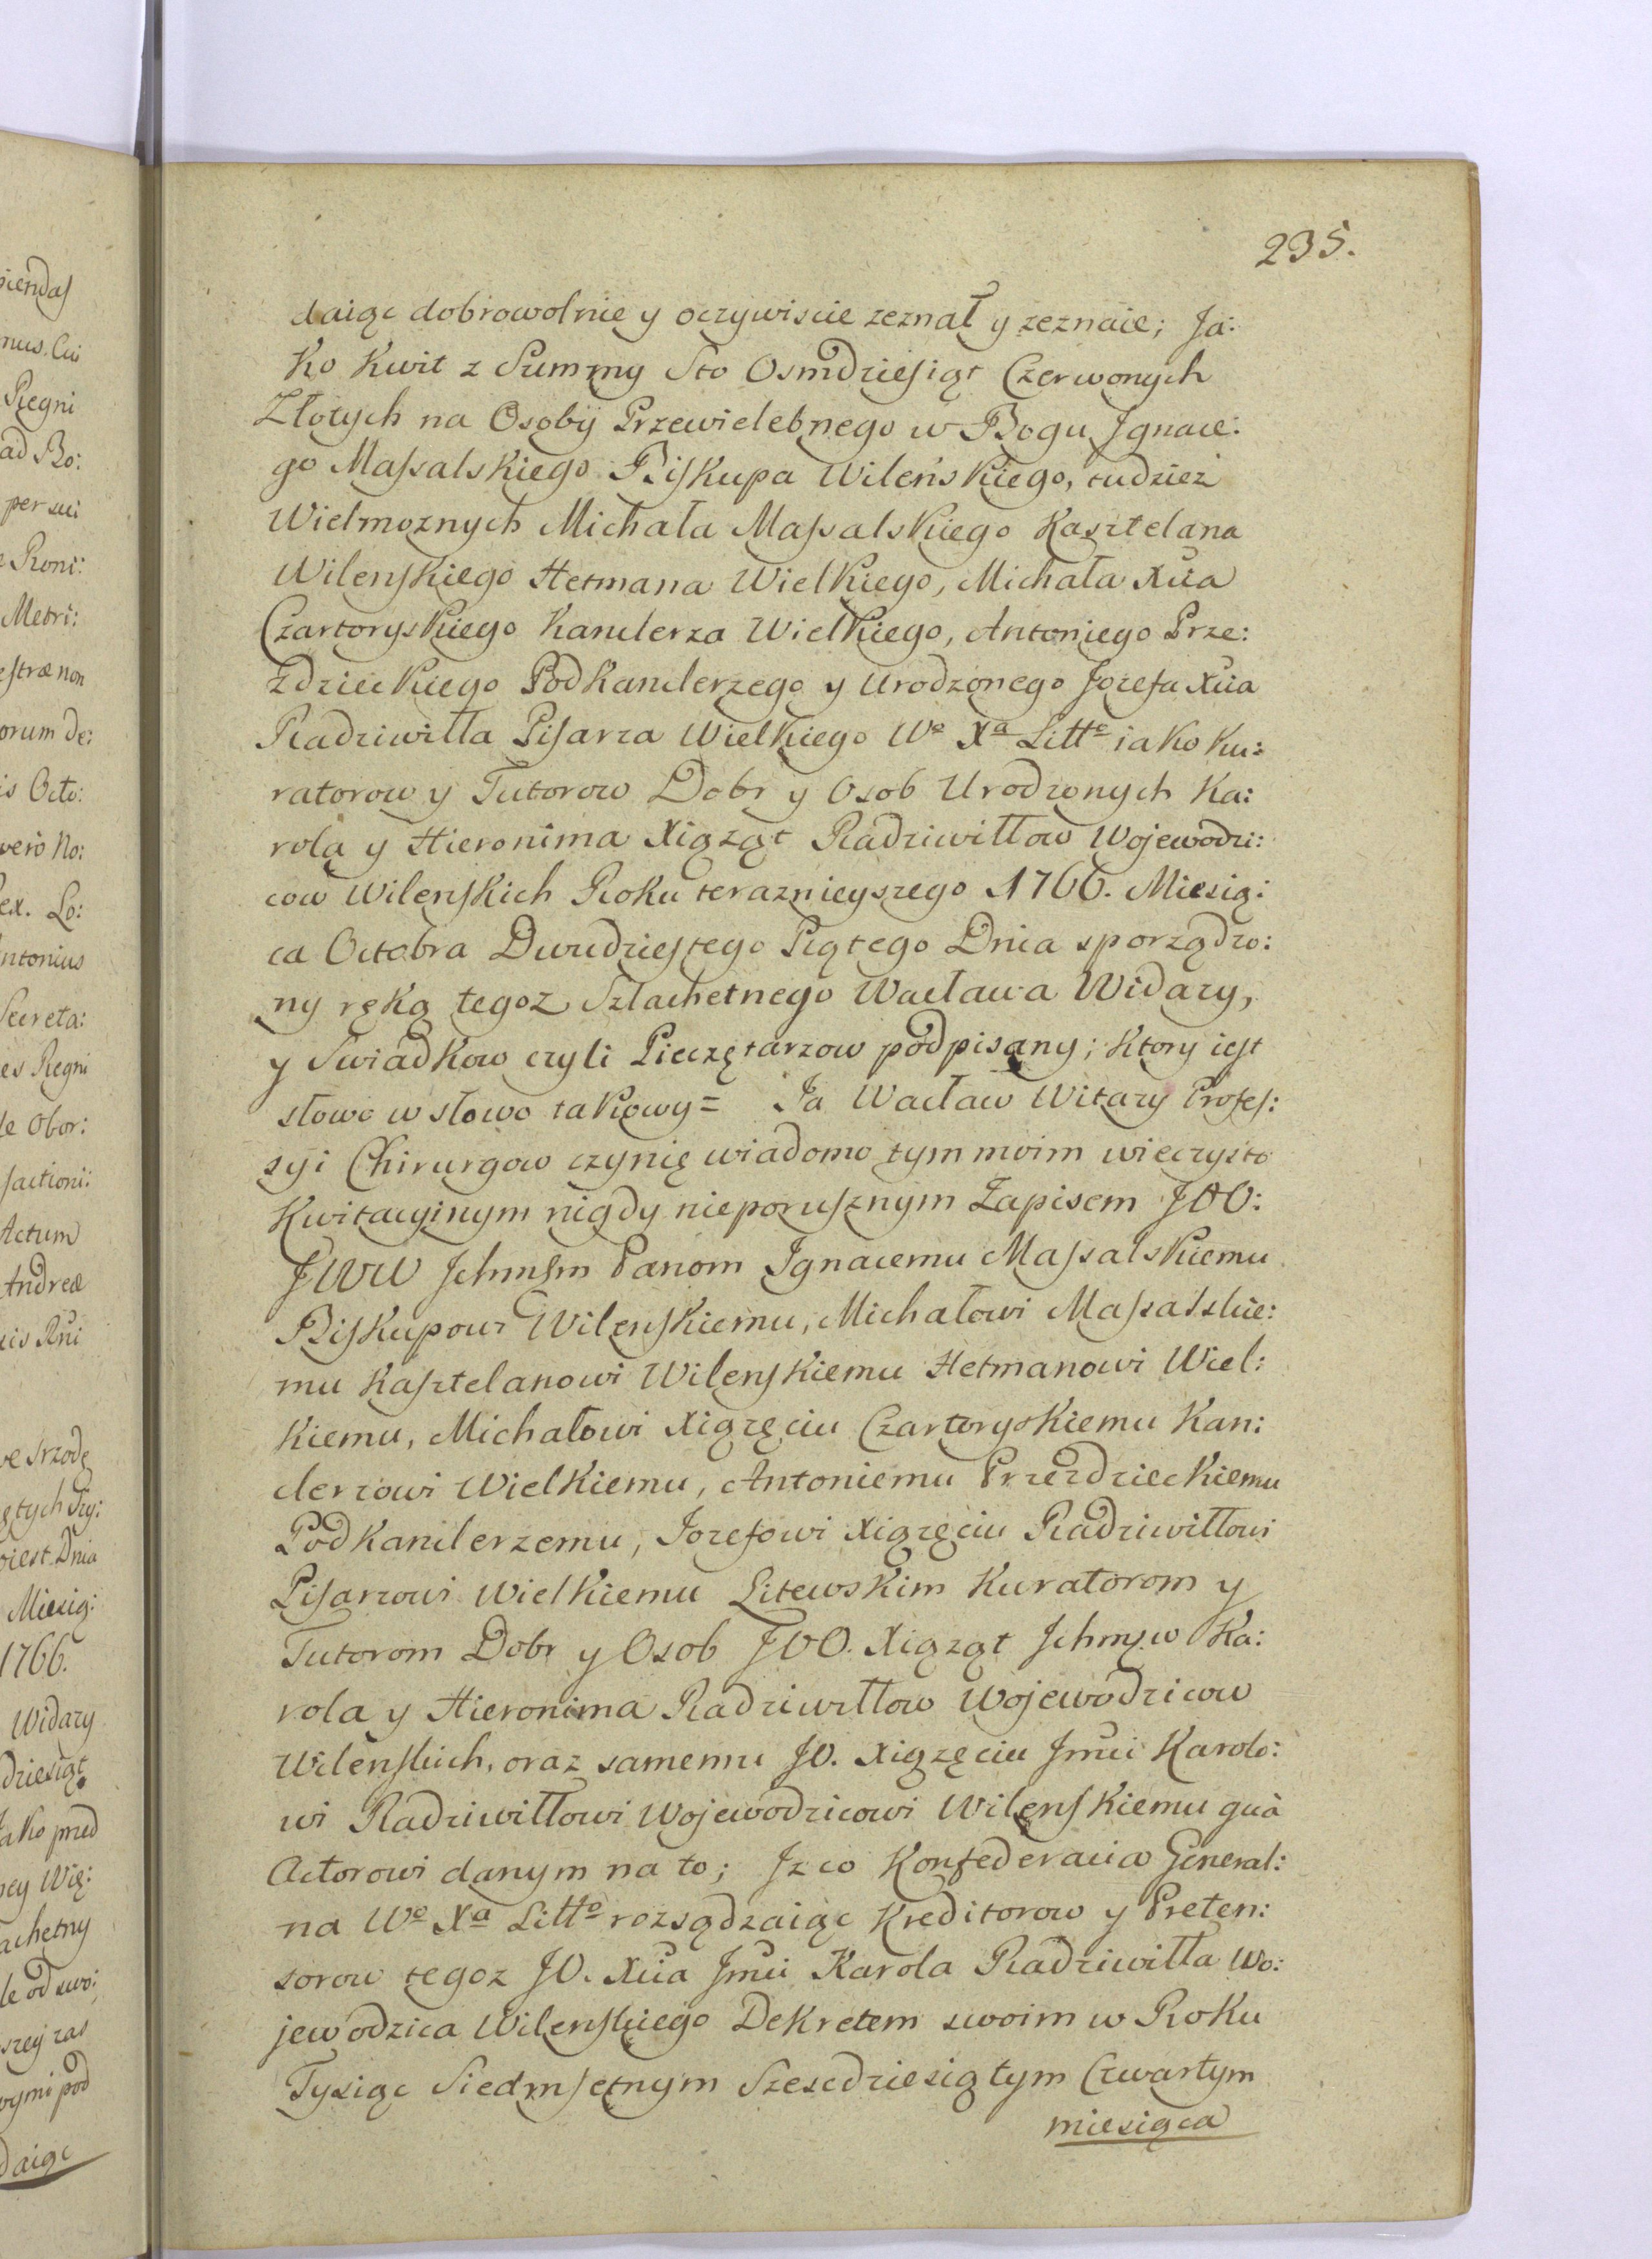 235.
daiąc dobrowolnie y oczywiscie zeznał y zeznaie; Ja:
ko Kwit z Summy Sto Osmdziesiąt Czerwonych
Złotych na Osoby Przewielebnego w Bogu Jgnace:
go Massalskiego Biskupa Wileńskiego, tudziez
Wielmoznych Michała Massalskiego Kasztelana
Wilenskiego Hetmana Wielkiego, Michała Xcia
Czartoryskiego Kanclerza Wielkiego, Antoniego Prze:
zdzieckiego Podkanclerzego y Urodzonego Jozefa Xcia
Radziwiłła Pisarza Wielkiego Wo Xa Litto iako Ku:
ratorow y Tutorow Dobr y Osob Urodzonych Ka:
rola y Hieronima Xiąząt Radziwiłłow Wojewodzi:
cow Wilenskich Roku teraznieyszego 1766. Miesią:
ca Octobra Dwudziestego Piątego Dnia sporządzo:
ny ręką tegoz Szlachetnego Wacława Widazy,
y Swiadkow czyli Pieczętarzow podpisany; ktory iest
słowo w słowo takowy= Ja Wacław Witazy Profes:
syi Chirurgow czynię wiadomo tym moim wieczysto
Kwitacyinym nigdy nieporusznym Zapisem JOO:
JWW Jchmsm Panom Jgnacemu Massalskiemu
Biskupowi Wilenskiemu, Michałowi Massalskie:
mu Kasztelanowi Wilenskiemu Hetmanowi Wiel:
kiemu, Michałowi Xiązęciu Czartoryskiemu Kan:
clerzowi Wielkiemu, Antoniemu Przezdzieckiemu
Podkanclerzemu, Jozefowi Xiązęciu Radziwiłłowi
Pisarzowi Wielkiemu Litewskim Kuratorom y
Tutorom Dobr y Osob JOO. Xiąząt Jchmsw Ka:
rola y Hieronima Radziwiłłow Wojewodzicow
Wilenskich, oraz samemu JO. Xiązęciu Jmci Karolo:
wi Radziwiłłowi Wojewodzicowi Wilenskiemu quà
Actorowi danym na to; Jz co Konfederacia General:
na Wo Xa Litto rozsądzaiąc Kreditorow y Preten:
sorow tegoz JO. Xcia Jmci Karola Radziwiłła Wo:
jewodzica Wilenskiego Dekretem swoim w Roku
Tysiąc Siedmsetnym Szescdziesiątym Czwartym
miesiąca